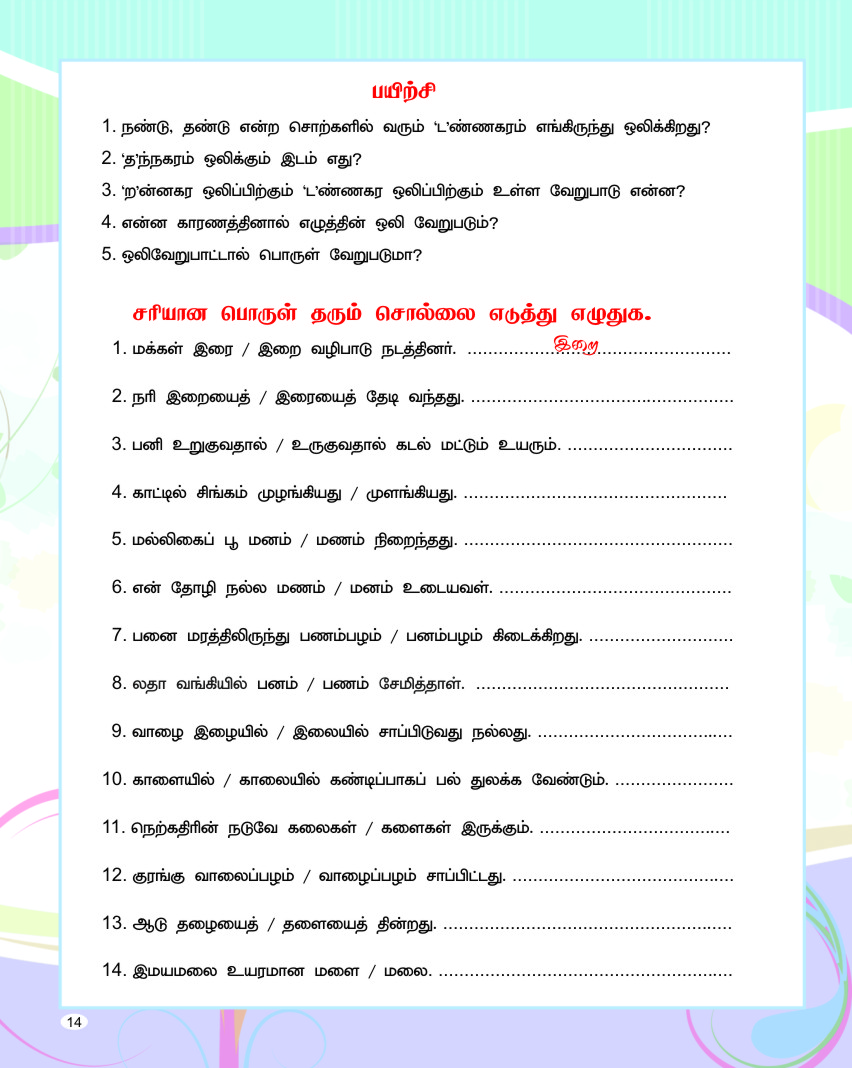 பயிற்சி
1. நண்டு, தண்டு என்ற சொற்களில் வரும் ‘ட’ண்ணகரம் எங்கிருந்து ஒலிக்கிறது?
2. ‘த’ந்நகரம் ஒலிக்கும் இடம் எது?
3. ‘ற’ன்னகர ஒலிப்பிற்கும் ‘ட’ண்ணகர ஒலிப்பிற்கும் உள்ள வேறுபாடு என்ன?
4. என்ன காரணத்தினால் எழுத்தின் ஒலி வேறுபடும்?
5. ஒலிவேறுபாட்டால் பொருள் வேறுபடுமா?
சரியான பொருள் தரும் சொல்லை எடுத்து எழுதுக.
1. மக்கள் இரை / இறை வழிபாடு நடத்தினர். ................இறை..........................
2. நரி இறையைத் / இரையைத் தேடி வந்தது. ...................................................
3. பனி உறுகுவதால் / உருகுவதால் கடல் மட்டும் உயரும். ................................
4. காட்டில் சிங்கம் முழங்கியது / முளங்கியது. ...................................................
5. மல்லிகைப் பூ மனம் / மணம் நிறைந்தது. ....................................................
6. என் தோழி நல்ல மணம் / மனம் உடையவள். .............................................
7. பனை மரத்திலிருந்து பணம்பழம் / பனம்பழம் கிடைக்கிறது. ............................
8. லதா வங்கியில் பனம் / பணம் சேமித்தாள். .................................................
9. வாழை இழையில் / இலையில் சாப்பிடுவது நல்லது. ......................................
10. காளையில் / காலையில் கண்டிப்பாகப் பல் துலக்க வேண்டும். .......................
11. நெற்கதிரின் நடுவே கலைகள் / களைகள் இருக்கும். .....................................
12. குரங்கு வாலைப்பழம் / வாழைப்பழம் சாப்பிட்டது. ...........................................
13. ஆடு தழையைத் / தளையைத் தின்றது. ........................................................
14. இமயமலை உயரமான மளை / மலை. .........................................................
14